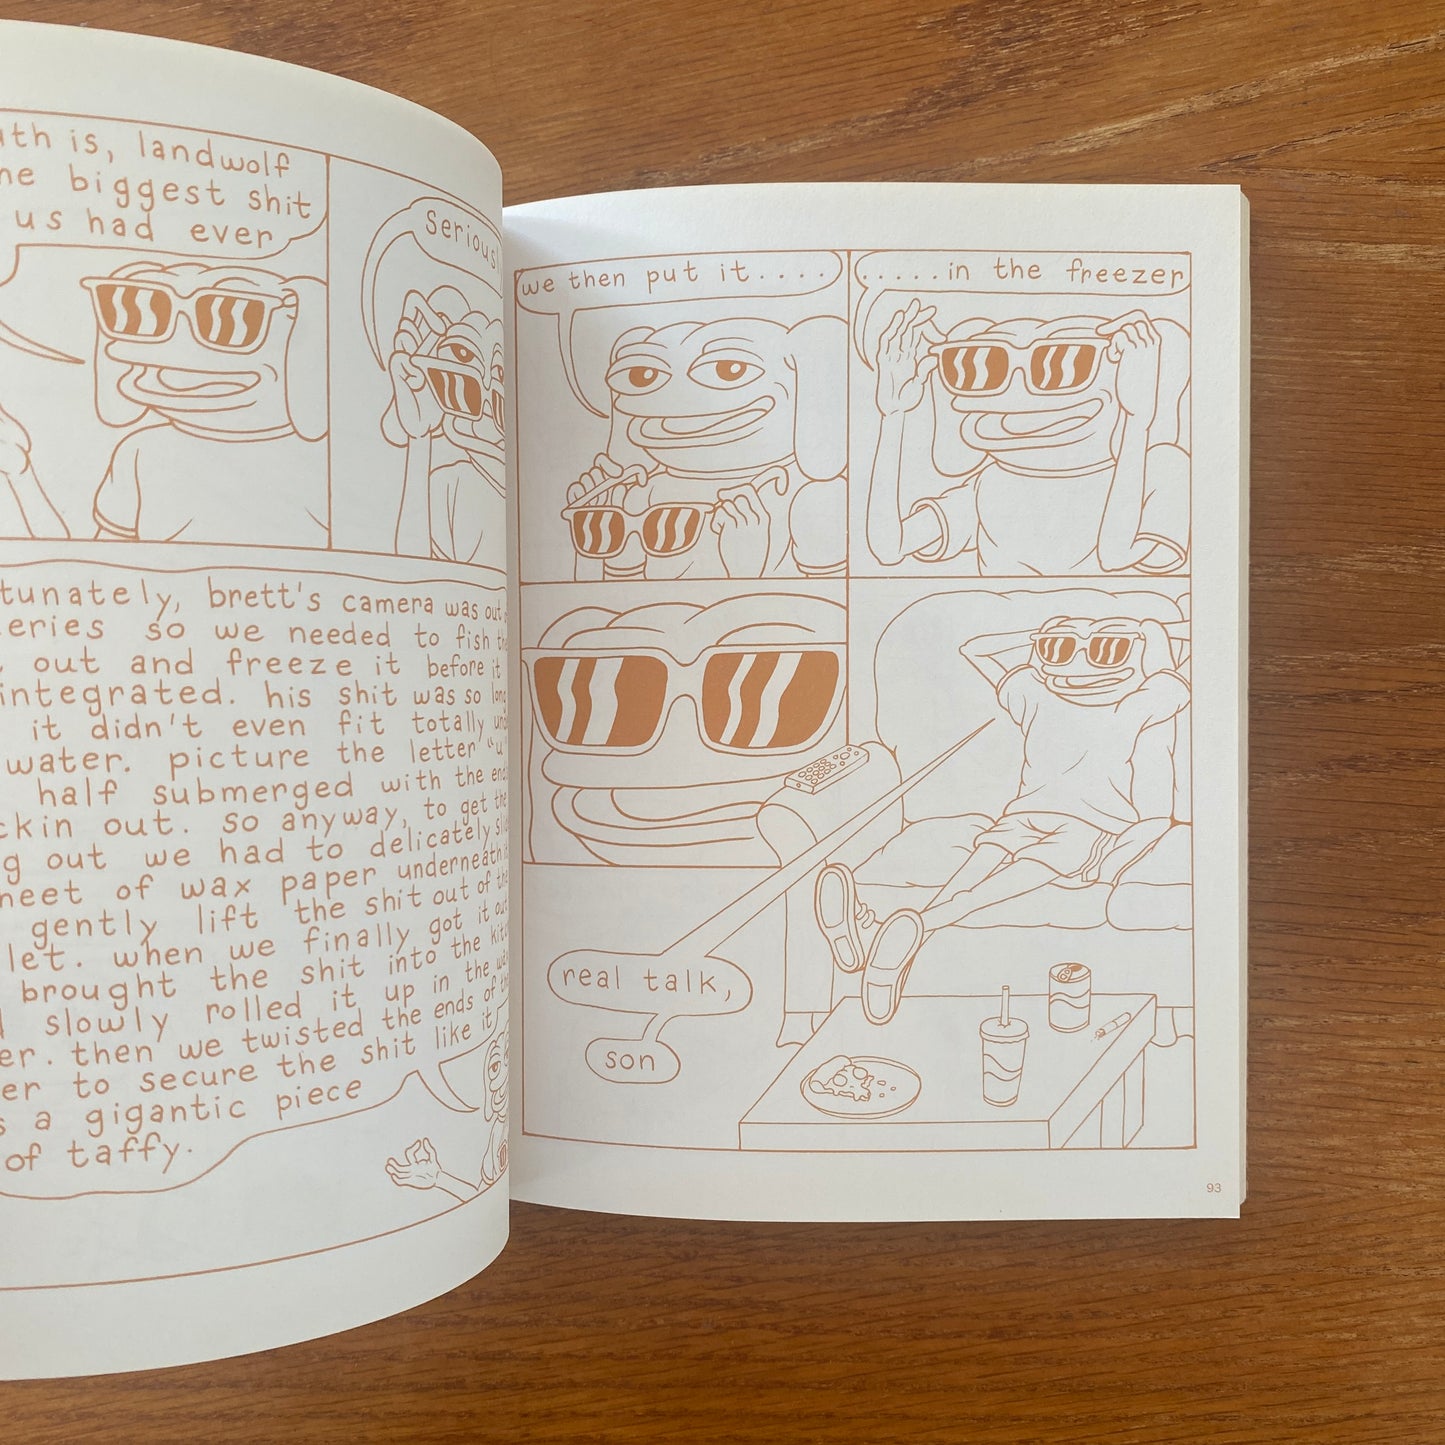 is, landwolf
biggest shit
us had ever
brett's camera was out
so we needed to fish
out and freeze it before it
his shit was so
it didn't even fit totally
water. picture the letter "u"
half submerged with the
out. so anyway, to get the
out we had to delicately
of wax paper underneath
gently lift the shit out of the
when we finally got it out
brought the shit into the
slowly rolled it up in the
then we twisted the ends of
to secure the shit like it
a gigantic piece
of taffy.
we then put it....
.....in the freezer
real talk,
son
93